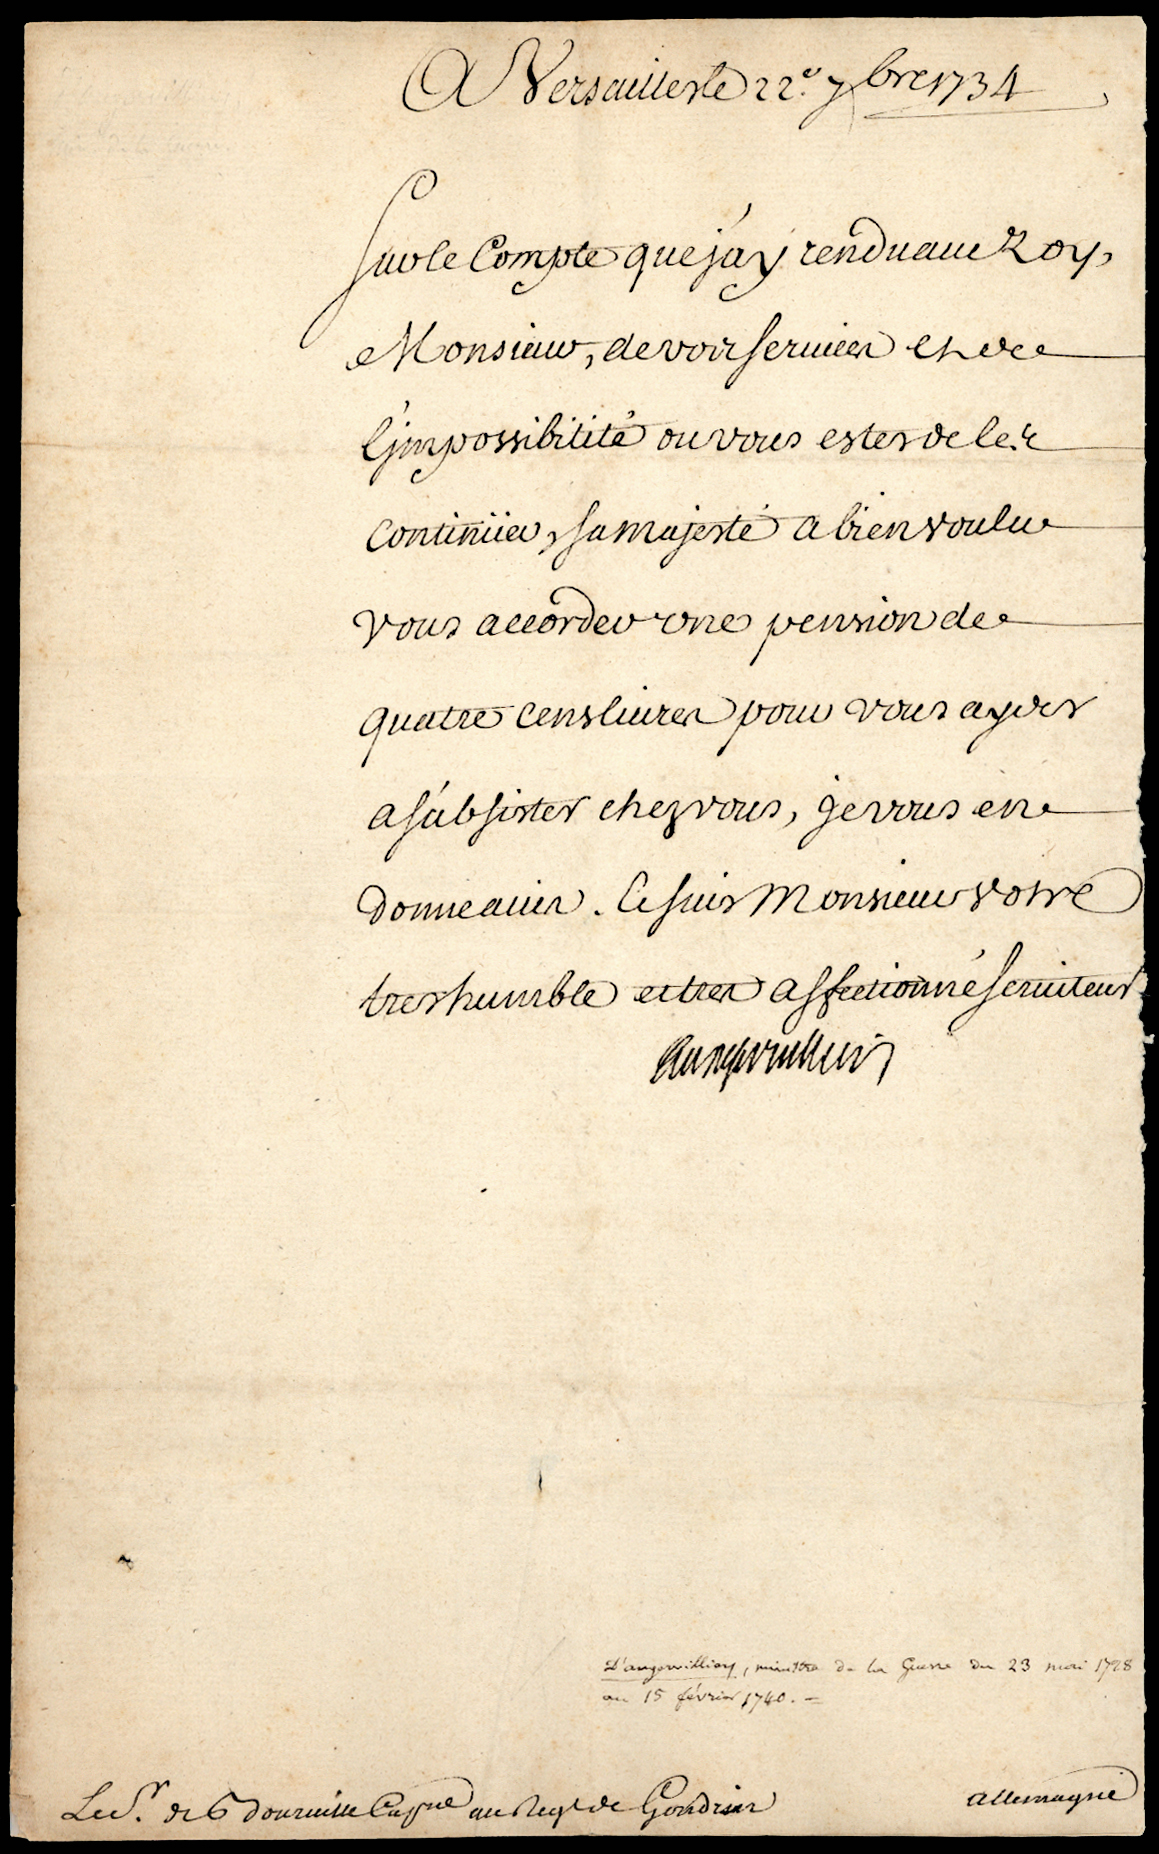 A Versailles le 22.e 7bre 1734
Sur le Compte que j'ay rendu au Roy,
Monsieur, de vos services et de
l'impossibilité ou vous estes de les
continüer, sa majesté a bien voulu
vous accorder une pension de
quatre cens livres pour vous ayder
a subsister chez vous, je vous en
donne avis. Je suis Monsieur votre
tres humble et tres affectionné serviteur
Dangervilliers
D'angervilliers, ministre de la Guerre du 23 mai 1728
au 15 février 1740. =
Le Sr. de Capne au Regt de Gondrin
allemagne